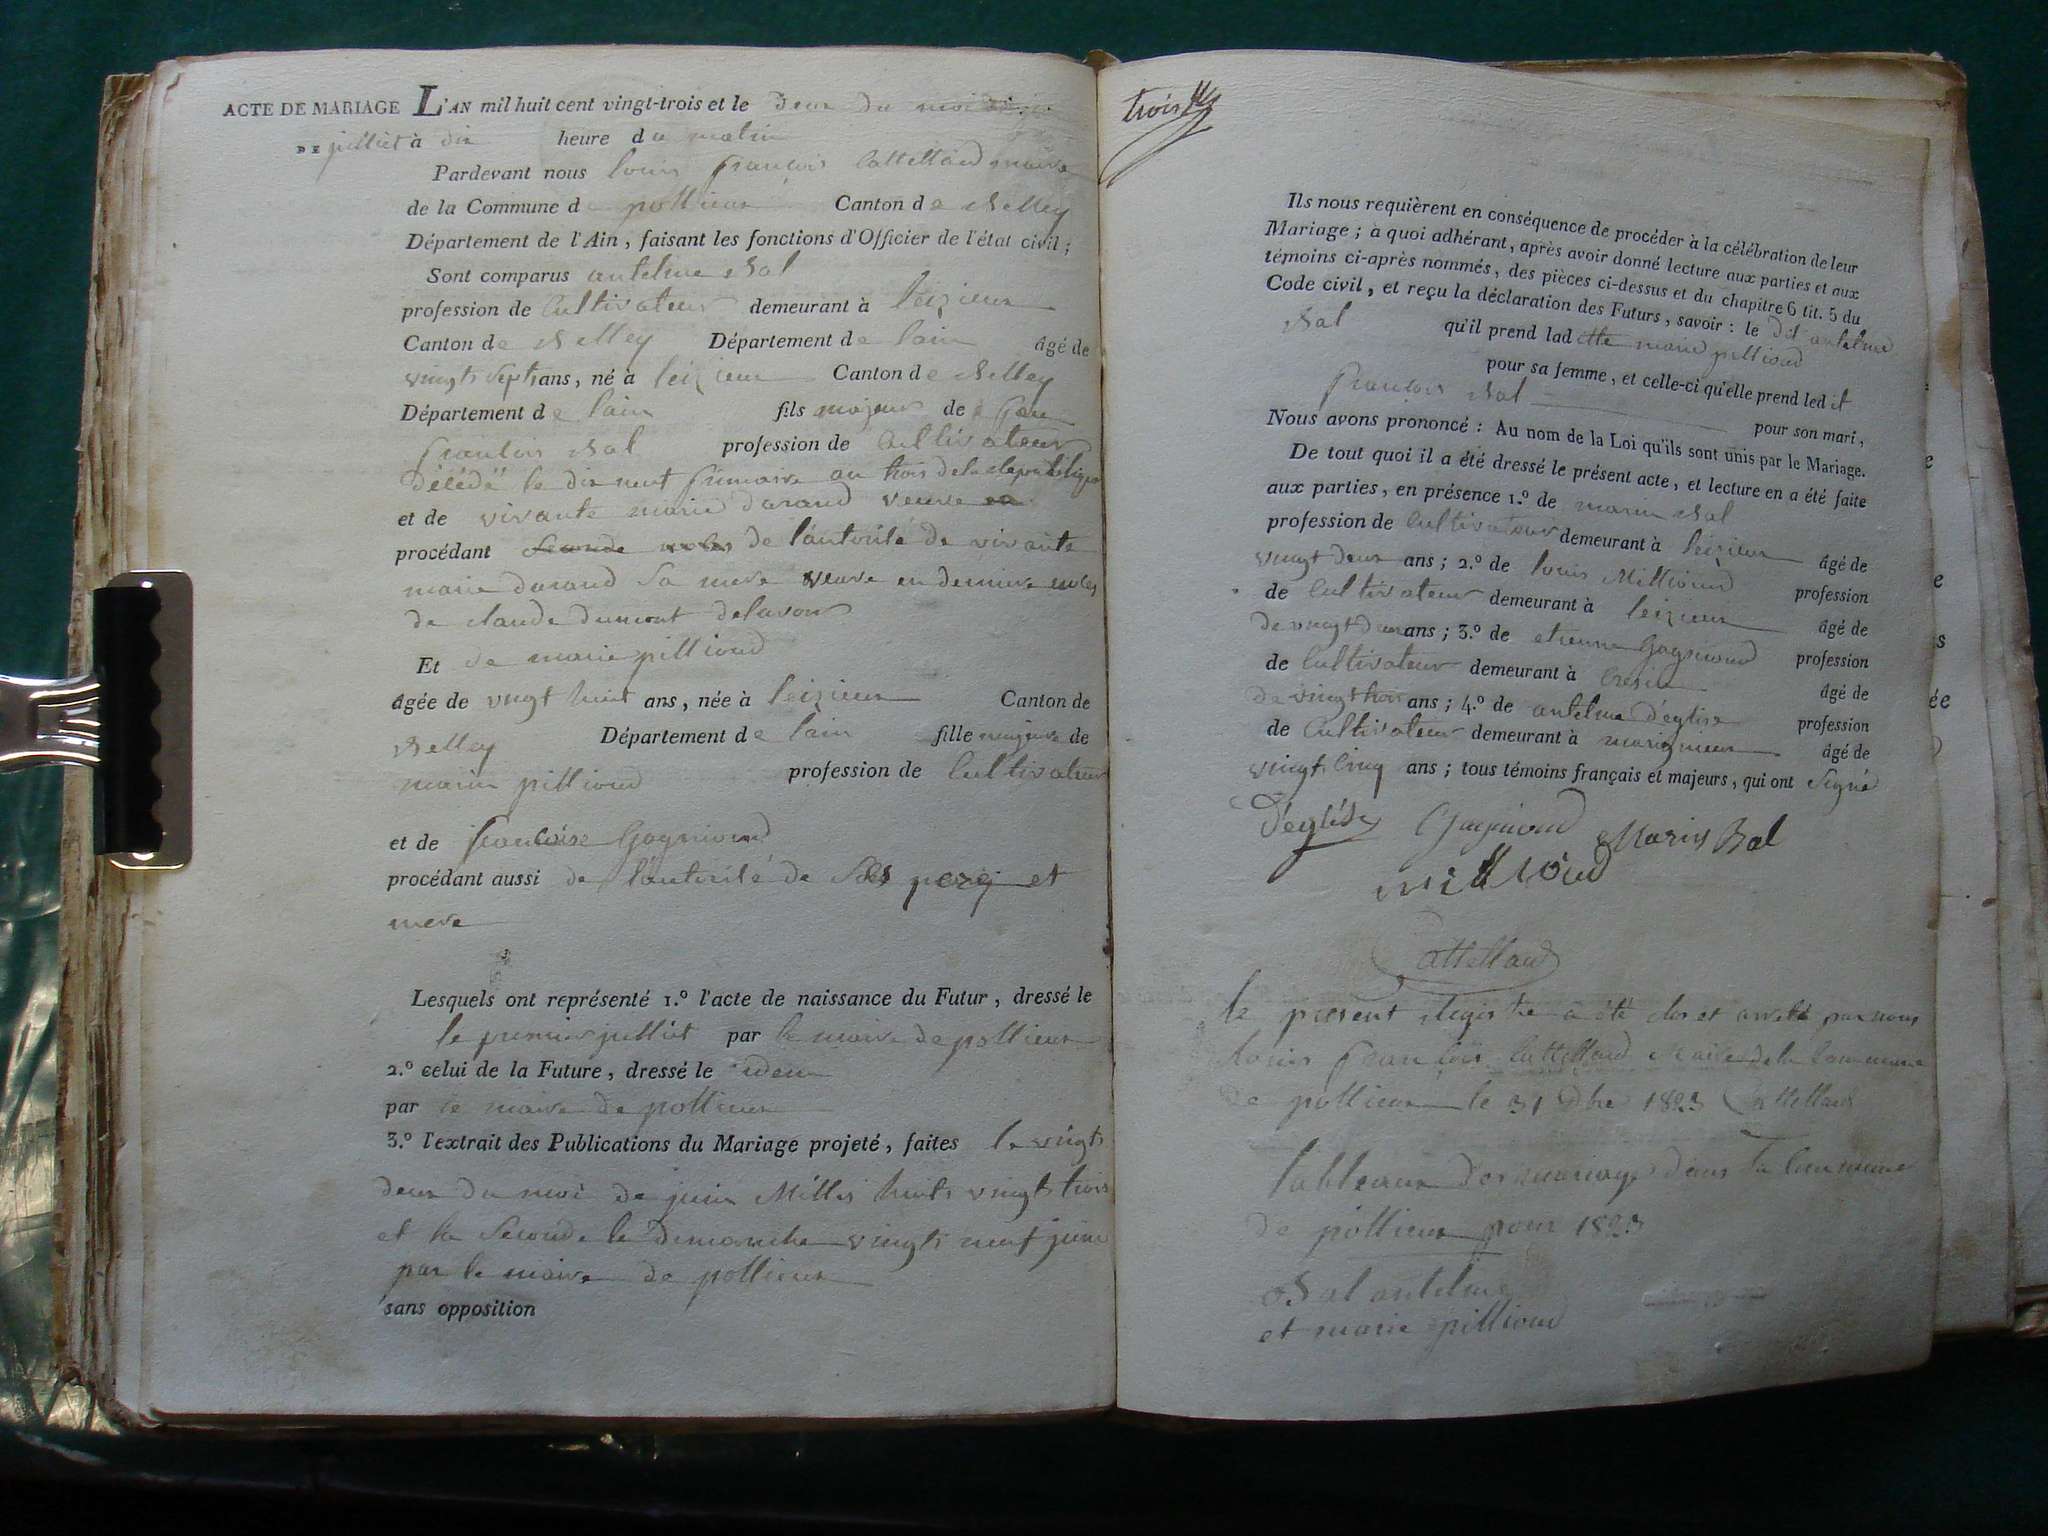 ACTE DE MARIAGE L'AN mil huit cent vingt-trois et le deux du moi
DE julliet à dix heure du matin
Pardevant nous louis françois Cattelland maire
de la Commune de pollieux Canton de Belley
Département de l'Ain, faisant les fonctions d'Officier de l'état civil;
Sont comparus antelme Bal
profession de Cultivateur demeurant à leizieux
Canton de Belley Département de lain âgé de
vingts septs ans, né à leizieux Canton de Belley
Département de lain fils majeur de feu
francois Bal profession de Cultivateur
Décédé le dix neuf frimaire an trois de la Republique
et de vivante marie durand veuve
procédant de l'autorité de vivante
marie durand sa mere veuve en derniere noces
de claude dumont delavour
Et de marie pillioud
âgée de vingt huit ans, née à leizieux Canton de
Belley Département de lain fille majeure de
marin pillioud profession de Cultivateur
et de francoise Gognioud
procédant aussi de l'autorité de ses pere et
mere
Lesquels ont représenté 1.º l'acte de naissance du Futur, dressé le
le premier julliet par le maire de pollieux
2.º celui de la Future, dressé le idem
par le maire de pollieux
3.º l'extrait des Publications du Mariage projeté, faites le vingts
deux du moi de juin Milles huits vingts trois
et la seconde le demanche vingts neuf juin
par le maire de pollieux
sans opposition
trois
Ils nous requièrent en conséquence de procéder à la célébration de leur
Mariage; à quoi adhérant, après avoir donné lecture aux parties et aux
témoins ci-après nommés, des pièces ci-dessus et du chapitre 6 tit. 5 du
Code civil, et reçu la déclaration des Futurs, savoir: le dit antelme
Bal qu'il prend laditte marie pillioud
pour sa femme, et celle-ci qu'elle prend ledit
françois Bal pour son mari,
Nous avons prononcé: Au nom de la Loi qu'ils sont unis par le Mariage.
De tout quoi il a été dressé le présent acte, et lecture en a été faite
aux parties, en présence 1.º de marin Bal
profession de Cultivateur demeurant à leizieux âgé de
vingt deux ans; 2.º de louis Millioud profession
de Cultivateur demeurant à leizieux âgé de
de vingt deux ans; 3.º de etienne Gognioud profession
de Cultivateur demeurant à Cresin âgé de
de vingt trois ans; 4.º de antelme d'eglise profession
de Cultivateur demeurant à marignieux âgé de
vingt cinq ans; tous témoins français et majeurs, qui ont Signé
D'eglise Gognioud Marin Bal
millioud
Cattelland
le present Registre a été clos et arreté par nous
louis françois Cattelland Maire de la Commune
de pollieux le 31 Dbre 1823 Cattelland
tableaux des mariage dans la Commune
de pollieux pour 1823
Bal antelme
et marie pillioud